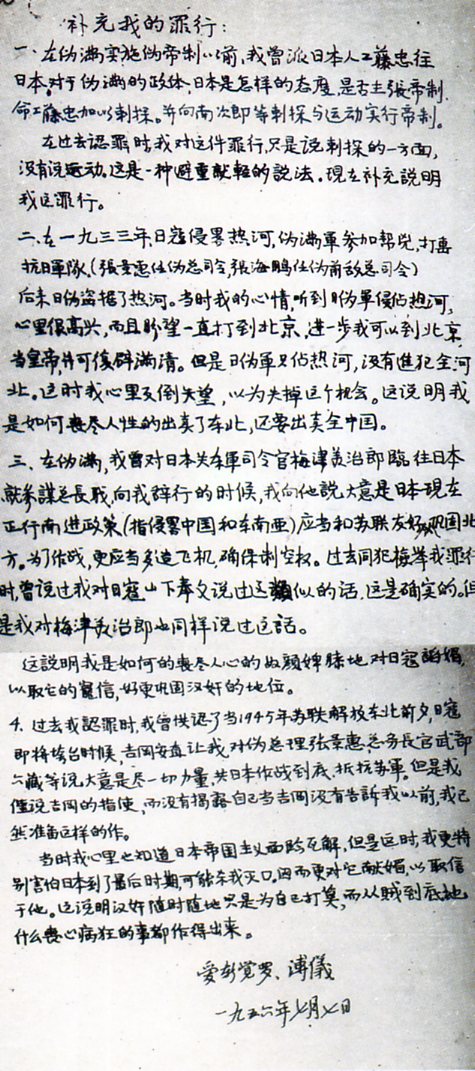 补充我的罪行：
一、在伪满实施伪帝制以前，我曾派日本人工藤忠往
日本，对于伪满的政体，日本是怎样的态度，是否主張帝制，
命工藤忠加以刺探。并向南次郎等刺探与运动实行帝制。
在过去認罪时，我对这件罪行，只是说刺探的一方面，
没有说运动。这是一种避重就轻的説法。现在补充説明
我这罪行。
二、在一九三三年，日寇侵畧热河，伪满軍参加帮兇，打击
抗日軍隊，（張景惠任伪总司令，張海鵬任伪前敌总司令）
后来日伪盗据了热河。当时我的心情，听到日伪軍侵佔热河，
心里很高兴，而且盼望一直打到北京，進一步我可以到北京
当皇帝，并可復辟满清。但是日伪軍只佔热河，没有進犯全河
北。这时我心里反倒失望，以为失掉这个机会。这说明我
是如何丧尽人性的出卖了东北，还要出卖全中国。
三、在伪满，我曾对日本关东軍司令官梅津美治郎臨往日本
就参謀总長职，向我辞行的时候，我向他說，大意是日本现在
正行南進政策（指侵畧中国和东南亚）应当和苏联友好巩固北
方。为了作战，更应当多造飞机，确保制空权。过去同犯检举我罪行
时，曾说过我对日寇山下奉文说过这類似的话，这是确实的。但
是我对梅津美治郎也同样说过这話。
这説明我是如何的丧尽人心的奴顔婢膝地对日寇諂媚，
以取它的寵信，好更巩固汉奸的地位。
4. 过去我認罪时，我曾供認了当1945年苏联解放东北前夕，日寇
即将垮台时候，吉岡安直让我对伪总理张景惠总务長官武部
六藏等说大意是尽一切力量，共日本作战到底，抵抗苏軍。但是我
僅说吉岡的指使，而没有揭露自己当吉岡没有告訴我以前，我已
然准备这样的作。
当时我心里也知道日本帝国主义面临瓦解，但是这时，我更特
别害怕日本到了最后时期，可能杀我灭口。因而更对它献媚，以取信
于他。这说明汉奸随时随地只是为自己打算，而认贼到底地
什么丧心病狂的事都作得出来。
爱新觉罗、溥儀
一九五六年七月七日